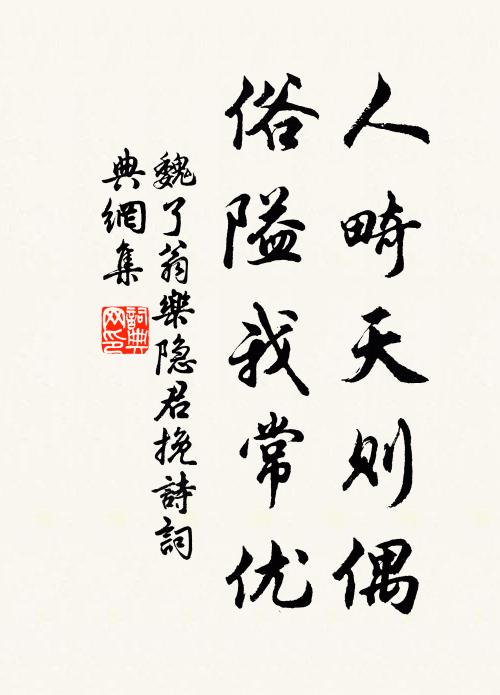 人畸天则偶
俗隘我常优
魏了翁樂隐君挽詩詞
典網集
詞典
网印